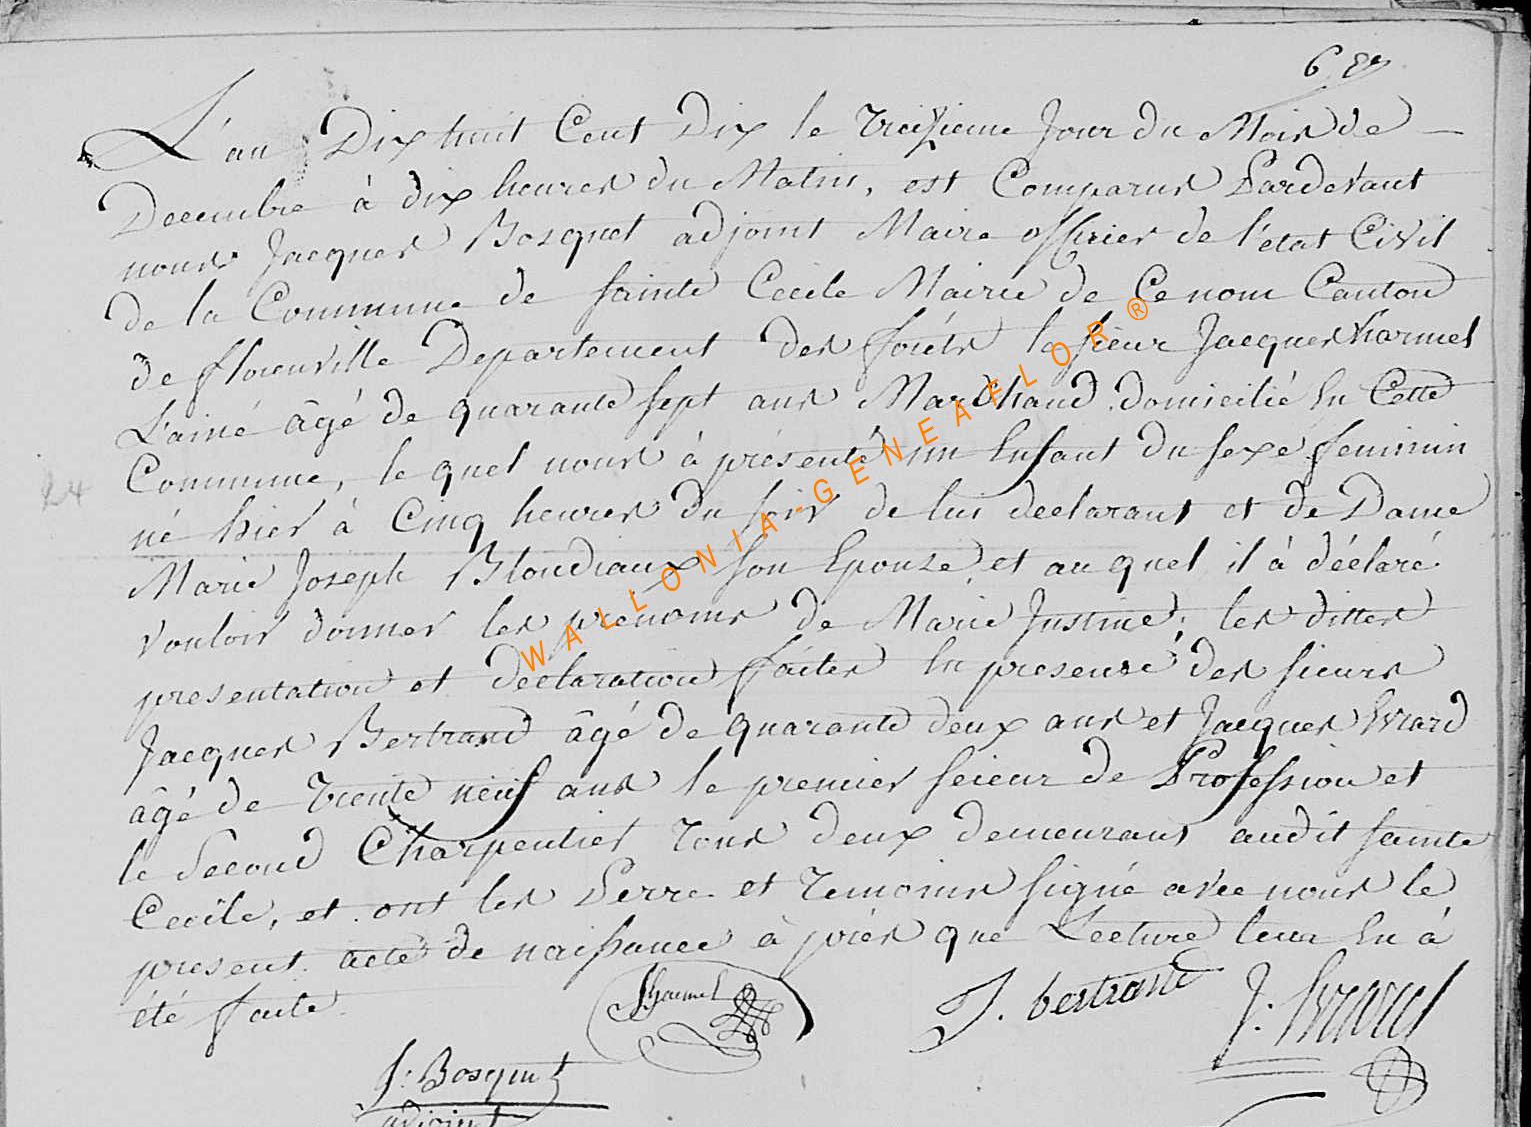 6 8e
L'an Dix huit Cent Dix le treizieme Jour du Mois de
Decembre à dix heures du Matin, est Comparus Pardevant
nous Jacques Bosquet adjoint Maire officier de l'etat Civil
de la Commune de Sainte Cecile Mairie de Ce nom Canton
de florenville Departement des foréts le sieur Jacques Harmel
L'ainé âgé de quarante sept ans Marchand domicilié En Cette
Commune, le quel nous à présenté un Enfant du sexe feminin
né hier à Cinq heures du soir de lui declarant et de Dame
Marie Joseph Blondiaux son Epouse, et au quel il à déclaré
vouloir donner les prenoms de Marie Justine; les dittes
presentation et declaration faites En presence des sieurs
Jacques Bertrand âgé de quarante deux ans et Jacques Evrard
âgé de trente neuf ans le premier scieur de Profession et
le second Charpentier tous deux demeurans audit sainte
Cecile, et ont les Perre et temoins signé avec nous le
present acte de naissance à prés que Lecture leur En à
été faite.
J. bertrand
J: Evrard
J: Bosquet
adjoint
24
WALLONIA-GENEAFLOR®